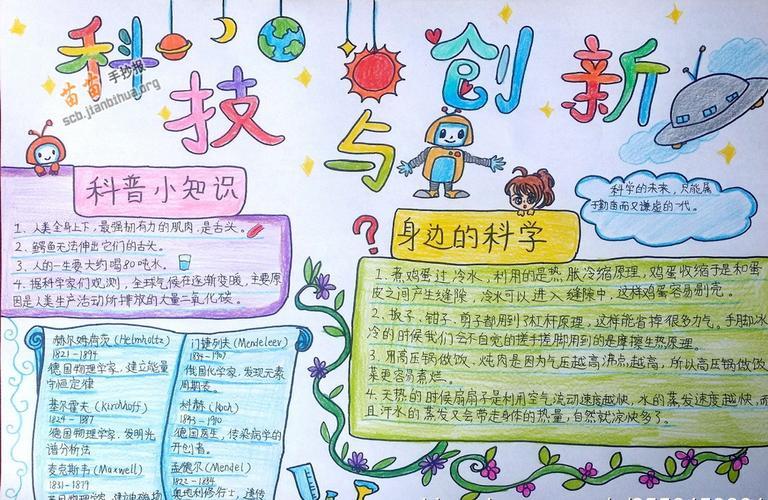 科技与创新
苗苗手抄报
scb.jianbihua.org
科学的未来，只能属
于勤奋而又谦虚的一代。
科普小知识
1、人类全身上下，最强韧有力的肌肉，是舌头。
2、鳄鱼无法伸出它们的舌头。
3、人的一生要大约喝80吨水。
4、据科学家们观测，全球气候在逐渐变暖，主要原
因是人类生产活动所排放的大量二氧化碳。
身边的科学
1、煮鸡蛋过冷水，利用的是热胀冷缩原理，鸡蛋收缩于是和蛋
皮之间产生缝隙，冷水可以进入缝隙中，这样鸡蛋容易剥壳。
2、扳子、钳子、剪子都用到了杠杆原理，这样能省掉很多力气。手脚冰
冷的时候我们会不自觉的搓手搓脚用到的是摩擦生热原理.
3、用高压锅做饭、炖肉是因为气压越高沸点越高，所以高压锅做饭、
菜更容易煮烂。
4、天热的时候扇扇子是利用空气流动速度越快，水的蒸发速度越快，而
且汗水的蒸发又会带走身体的热量，自然就凉快多了。
赫尔姆荷茨(Helmholtz)
1821-1894
德国物理学家，建立能量
守恒定律
基尔霍夫(Kirchhoff)
1824-1887
德国物理学家，发明光
谱分析法
麦克斯韦(Maxwell)
1831-1879
门捷列夫(Mendeleev)
1834-1907
俄国化学家，发现元素
周期表。
科赫(Koch)
1843-1910
德国医生，传染病学的
开创者。
孟德尔(Mendel)
1822-1884
奥地利修行士，遗传